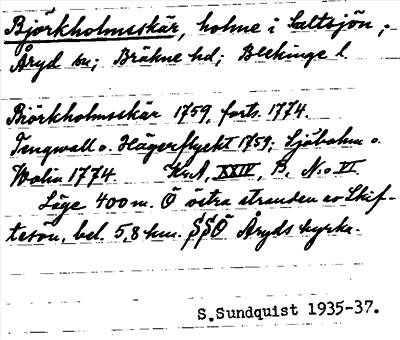 Björkholmsskär, holme i Saltsjön,
Åryd sn; Bräkne hd; Blekinge l.
Biörkholmsskär 1759, forts. 1774.
Tengwall o. Hägerflycht 1759; Sjöbohm o.
Wolin 1774. Kr.A, XXIV, B, N:o VI.
Läge 400 m. Ö östra stranden av Skif-
tesön, bel. 5,8 km. SSÖ Åryds kyrka.
S.Sundquist 1935-37.